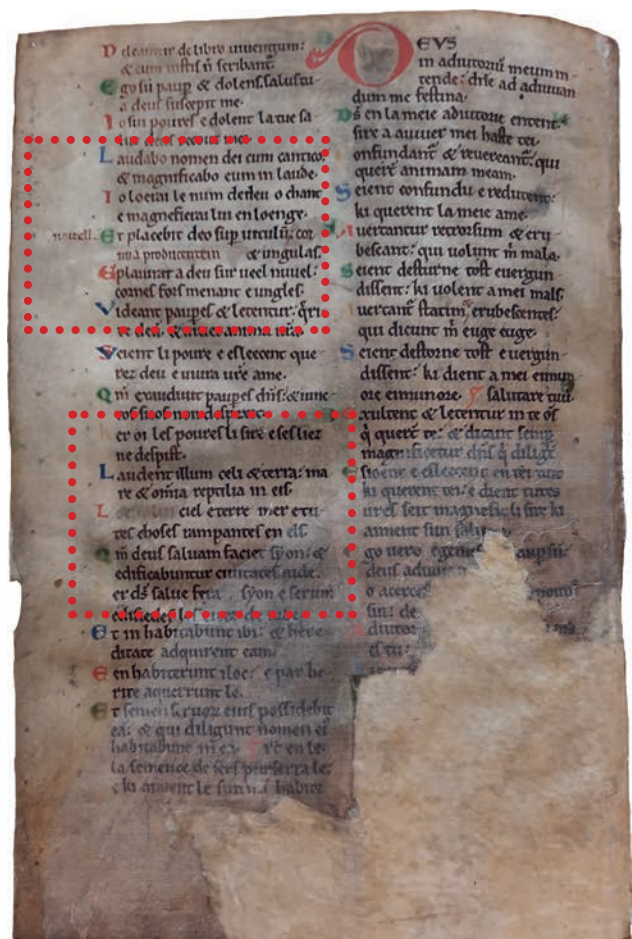 Deleantur de libro uiuentium:
& cum iustis ñ scribant̃.
Ego sũ paup̃ & dolens. salus tu-
a deus suscepit me.
Io sui poures e dolent la tue sa
Laudabo nomen dei cum cantico:
& magnificabo eum in laude.
Io loerai le num de deu o chant
e magnefierai lui en loenge.
nouell.. Et placebit deo sup̃ uitulũ: cor
nua producentem & ungulas.
E plairat a deu sur ueel nuuel:
cornes fors menant e ungles.
Videant paup̃es & letentur: q̃ri
Veient li poure e esleecent que
rez deu e uiura u̾re ame.
Qm̃ exaudiuit paup̃es dñs: & uinc
er oi les poures li sire e ses liez
ne despist.
Laudent illum celi & terra: ma
re & om̃ia reptilia in eis.
ciel e terre mer e tu
tes choses rampantes en els.
Qm̃ deus saluam faciet syon: &
edificabuntur ciuitates iude.
er ds̃ salue fera syon e serunt
edifiedes les
Et inhabitabunt ibi: & here
ditate adquirent eam.
E en habiterunt iloc: e par he
rite aquerrunt le.
Et semen seruor̃ eius possidebit
ea: & qui diligunt nomen ei̾
habitabunt in ea. en le
la semence de sers purserra le:
e ki aiment le sun habite
DEVS
in adiutoriũ meum in-
tende: dñe ad adiuuan
dum me festina.
Ds̃ en la meie adiutorie entent:
sire a aiuuer mei haste tei
onfundant̃ & reuereant̃: qui
querẽt animam meam.
Seient confundu e reduteñt:
ki querent la meie ame.
Auertantur retrorsum & eru
bescant: qui uolunt m̃ mala.
Seient desturne tost e uergun-
dissent: ki uolent a mei mals.
uertant̃ statim erubescentes:
qui dicunt m̃ euge euge.
Seient destorne tost e uergun-
dissent: ki dient a mei eimun
ore eimunore. salutare tuũ
xultent & letentur in te õs
q̃ querẽt te: & dicant semp̃
magnificetur dñs q̃ diligt
e esleecent en tei tuit
ki querent tei: e dient tutes
ures seit magnefie li sire ki
aiment sun
go uero egenus paup̃ sũ:
deus
o
sui: de
adiutor
es tu: